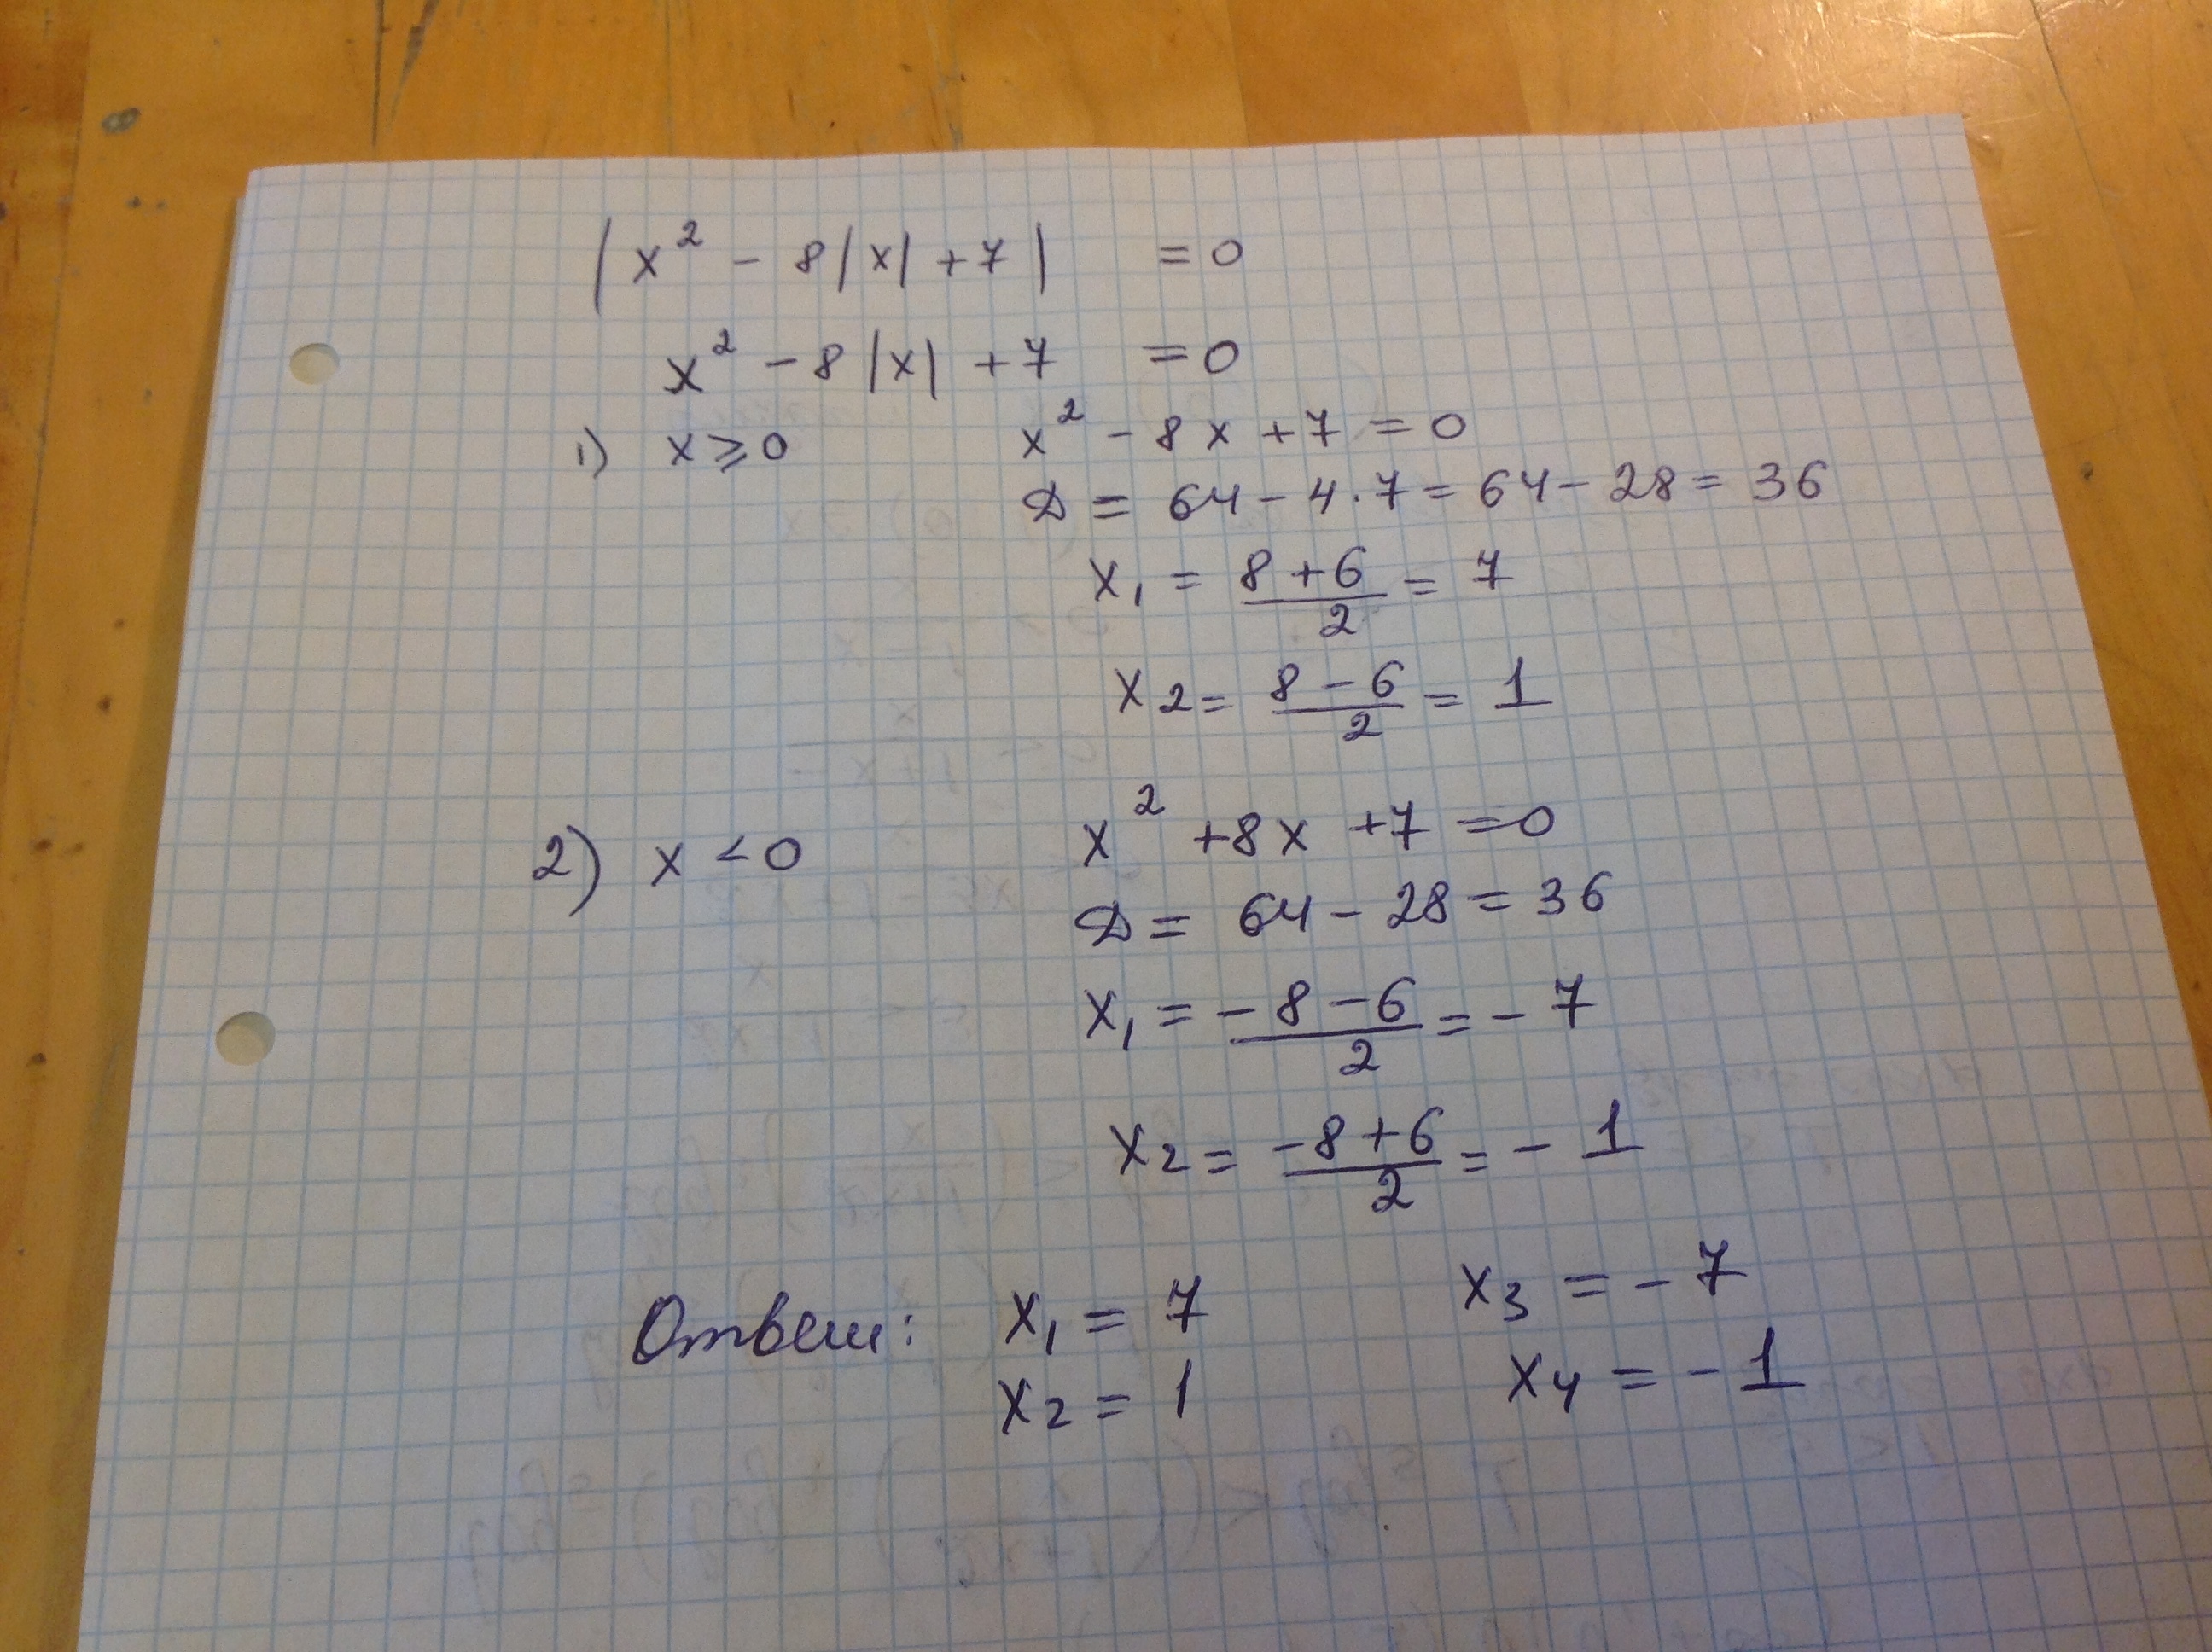 |x² - 8|x| + 7| = 0
x² - 8|x| + 7 = 0
1) x ⩾ 0 x² - 8x + 7 = 0
D = 64 - 4·7 = 64 - 28 = 36
x₁ = (8 + 6)/2 = 7
x₂ = (8 - 6)/2 = 1
2) x < 0 x² + 8x + 7 = 0
D = 64 - 28 = 36
x₁ = (-8 - 6)/2 = -7
x₂ = (-8 + 6)/2 = -1
Ответ: x₁ = 7 x₃ = -7
x₂ = 1 x₄ = -1